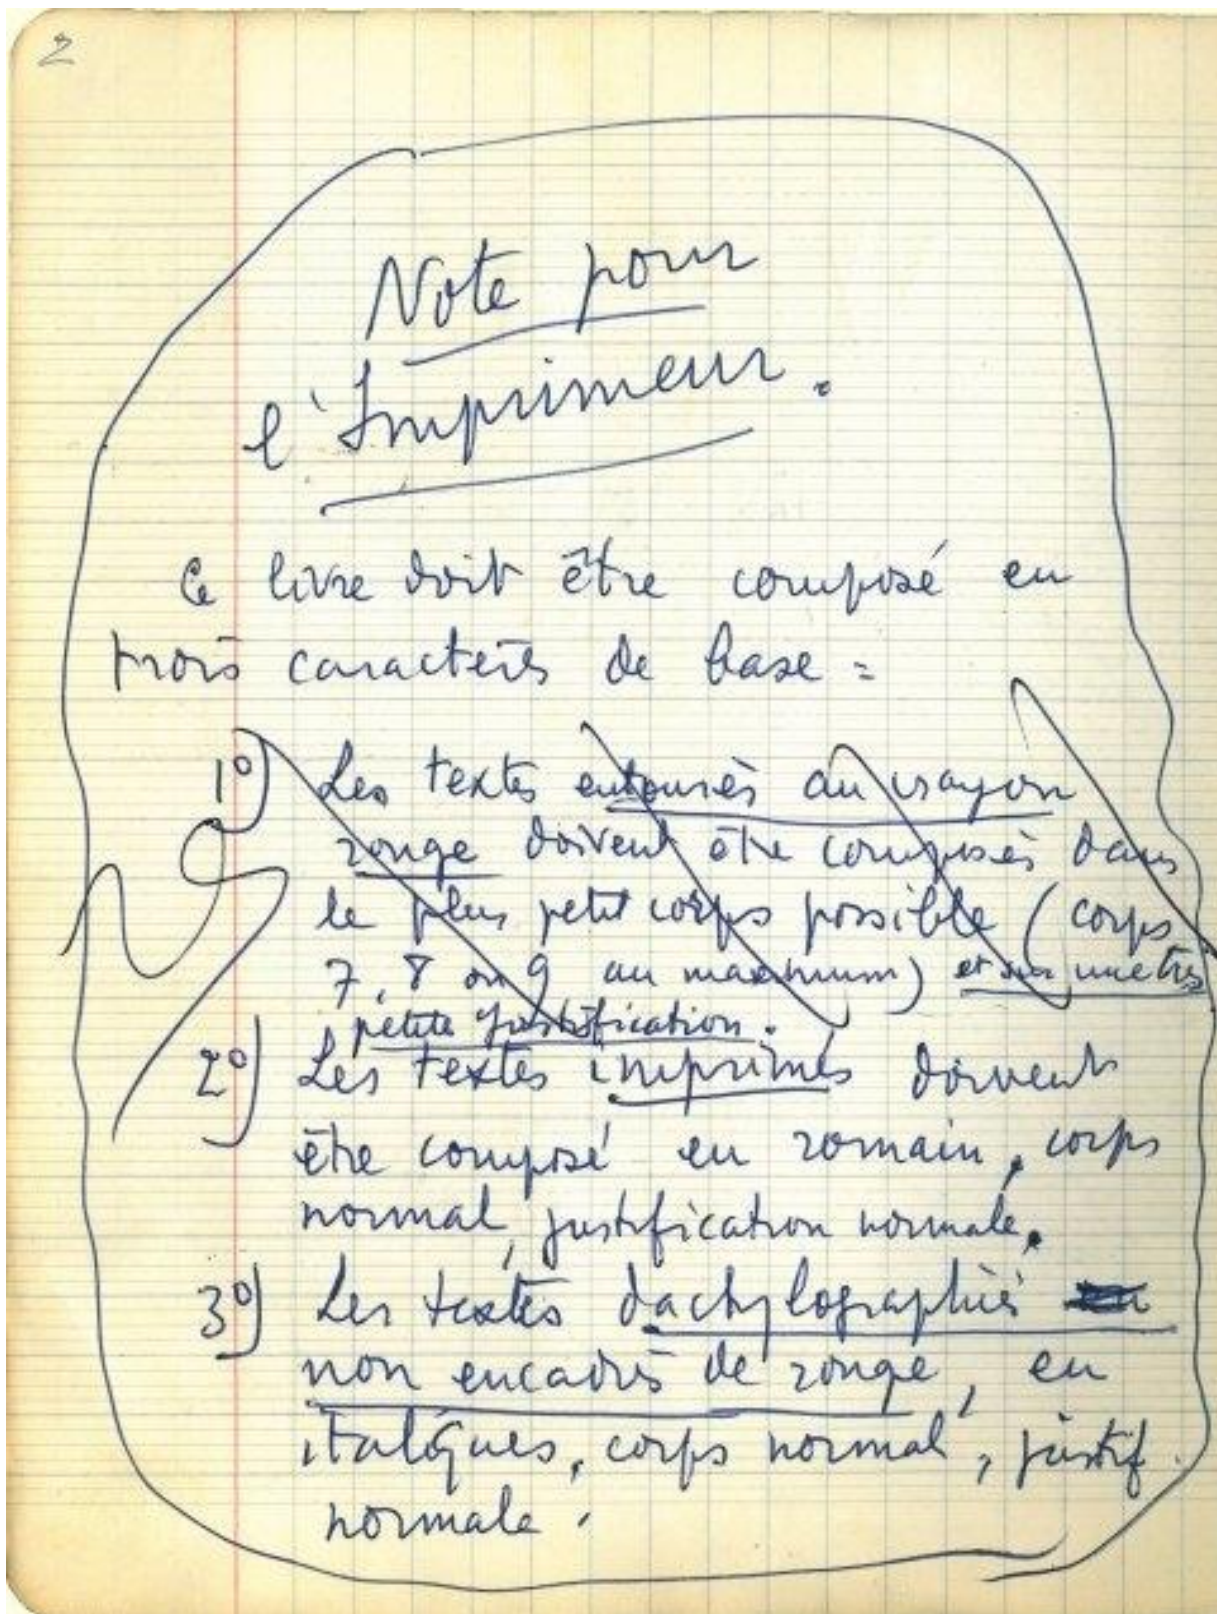 2
Note pour
l'Imprimeur.
Ce livre doit être composé en
trois caractères de base :
1°) Les textes entourés au crayon
rouge doivent être composés dans
le plus petit corps possible (corps
7, 8 ou 9 au maximum) et sur une très
petite justification.
2°) Les textes imprimés doivent
être composé en romain, corps
normal, justification normale.
3°) Les textes dactylographiés
non encadrés de rouge, en
italiques, corps normal, justif.
normale.